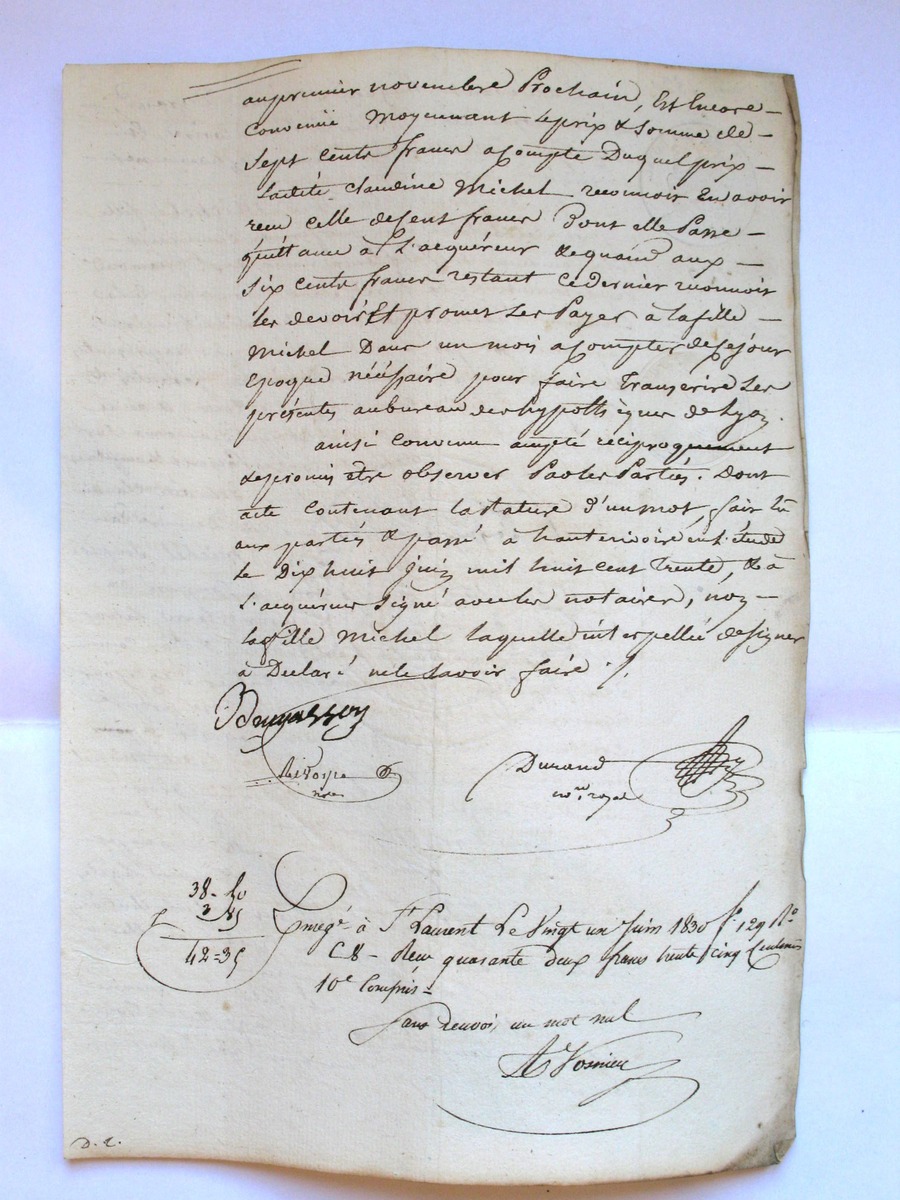 au premier novembre Prochain, Est Encore
Convenue moyennant le prix & Somme de
Sept cents francs a Compte Duquel prix
ladite claudine Michel reconnoit En avoir
reçu celle de Cent francs Dont elle Passe
quittance à L'acquéreur & quand aux
Six cents francs restant Ce dernier reconnoit
les devoir Et promet Les Payer à la fille
Michel Dans un mois a Compter de Ce jour
Epoque nécéssaire pour faire Transcrire Les
présentes au bureau des hypothèques de Lyon.
ainsi Convenu accepté réciproquement
& promis être observer Par les Parties. Dont
acte Contenant la rature d'un mot, fait lu
aux parties & passé à hauterivoire en l'étude
Le Dix huit Juin mil huit cent Trente, & à
L'acquéreur Signé avec les notaires, non
la fille Michel laquelle interpellée de Signer
à Déclaré ne le Savoir faire ./.
Durand
nore royal
not
38-50
3 85
42=35
Enregé à St Laurent Le Vingt un Juin 1830 fo 129 Ro
C 8 - Reçu quarante deux francs trente cinq Centimes
10e Compris
Sans renvoi, un mot nul
D. 2.